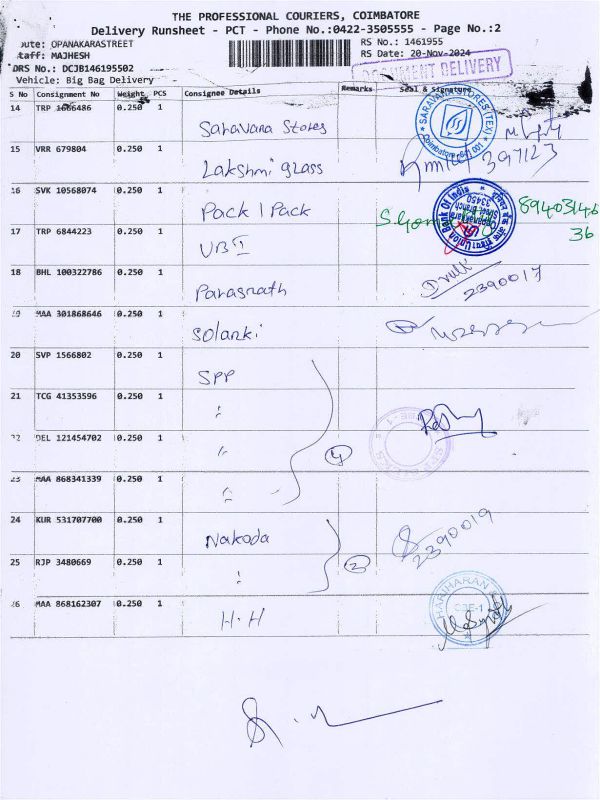 THE PROFESSIONAL COURIERS, COIMBATORE
Delivery Runsheet - PCT - Phone No.:0422-3505555 - Page No.:2
oute: OPANAKARASTREET RS No.: 1461955
taff: MAJHESH RS Date: 20-Nov-2024
DRS No.: DCJB146195502 DOCUMENT DELIVERY
Vehicle: Big Bag Delivery
S No Consignment No Weight PCS Consignee Details Remarks Seal & Signature
14 TRP 1666486 0.250 1 Saravana Stores SARAVANA STORES (TEX)
Coimbatore 641 001
15 VRR 679804 0.250 1 Lakshmi glass 397123
16 SVK 10568074 0.250 1 Pack 1 Pack Union Bank Of India
17 TRP 6844223 0.250 1 UBI 36
18 BHL 100322786 0.250 1 Parasnath 2390017
19 MAA 301868646 0.250 1 Solanki
20 SVP 1566802 0.250 1 SPP
21 TCG 41353596 0.250 1 "
22 DEL 121454702 0.250 1 " 4
23 MAA 868341339 0.250 1 "
24 KUR 531707700 0.250 1 Nakoda 2390019
25 RJP 3480669 0.250 1 " 2
26 MAA 868162307 0.250 1 H.H HARIHARAN
CBE-1